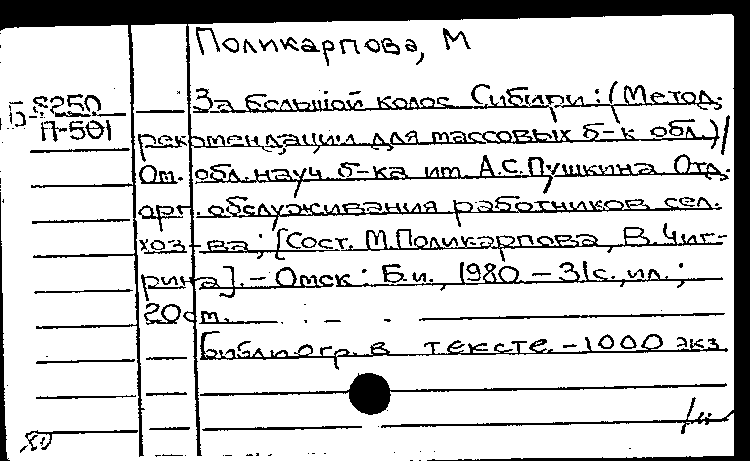 Поликарпова, М
Б-8250
П-501
За большой колос Сибири: (Метод.
рекомендации для массовых б-к обл.)/
Ом. обл. науч. б-ка им. А.С. Пушкина Отд.
орг. обслуживания работников сел.
хоз-ва; [Сост. М. Поликарпова, В. Чиг-
рина]. - Омск: Б.и., 1980 - 31с., ил.;
20см.
Библиогр. в тексте. - 1000 экз.
80